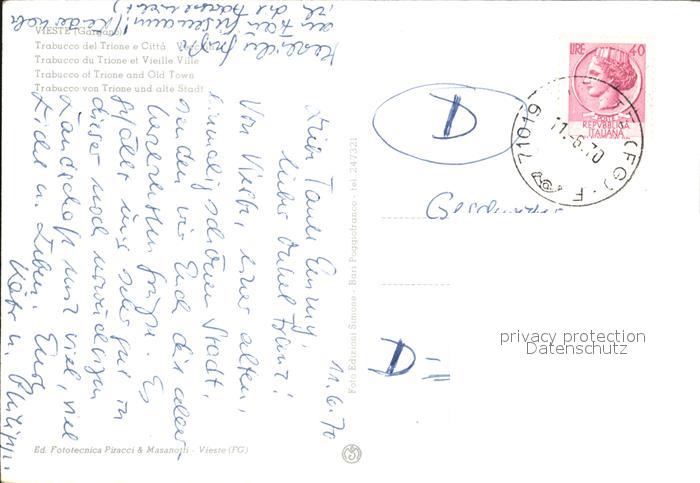 VIESTE (Gargano)
Trabucco del Trione e Città Vecchia
Trabucco du Trione et Vieille Ville
Trabucco of Trione and Old Town
Trabucco von Trione und alte Stadt
11.6.70
Liebe Tante Emmy,
lieber Onkel Franz!
Von Vieste, einer alten,
einmalig schönen Stadt,
senden wir Euch die aller-
herzlichsten Grüße. Es
gefällt uns sehr gut in
dieser noch urwüchsigen
Landschaft mit viel, viel
Licht u. Leben. Eure
u. Philipp.
Foto Edizioni Simone - Bari Poggiofranco - tel. 247321
Ed. Fototecnica Piracci & Masanotti - Vieste (FG)
D
D=
LIRE 40
POSTE
REPVBBLICA
ITALIANA
71019
(FG) - F
11.-6.70
privacy protection
Datenschutz